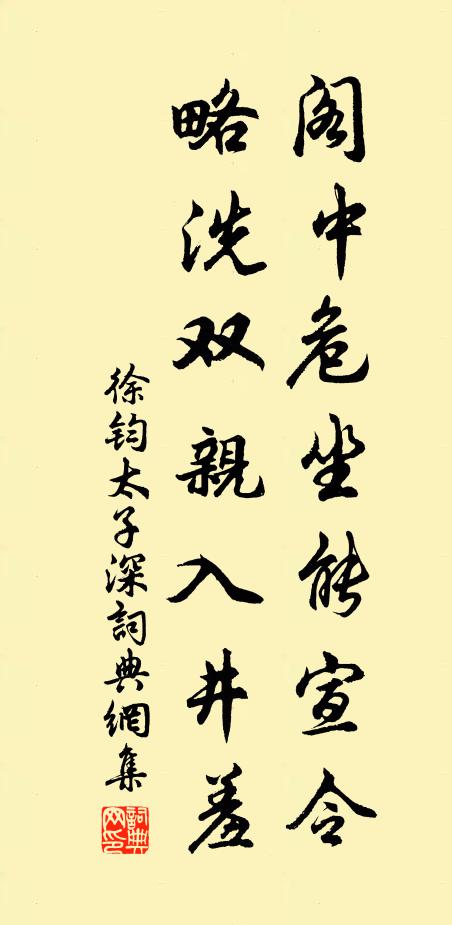 阁中危坐能宣令
略洗双親入井羞
徐钧太子深詞典網集
詞典网印